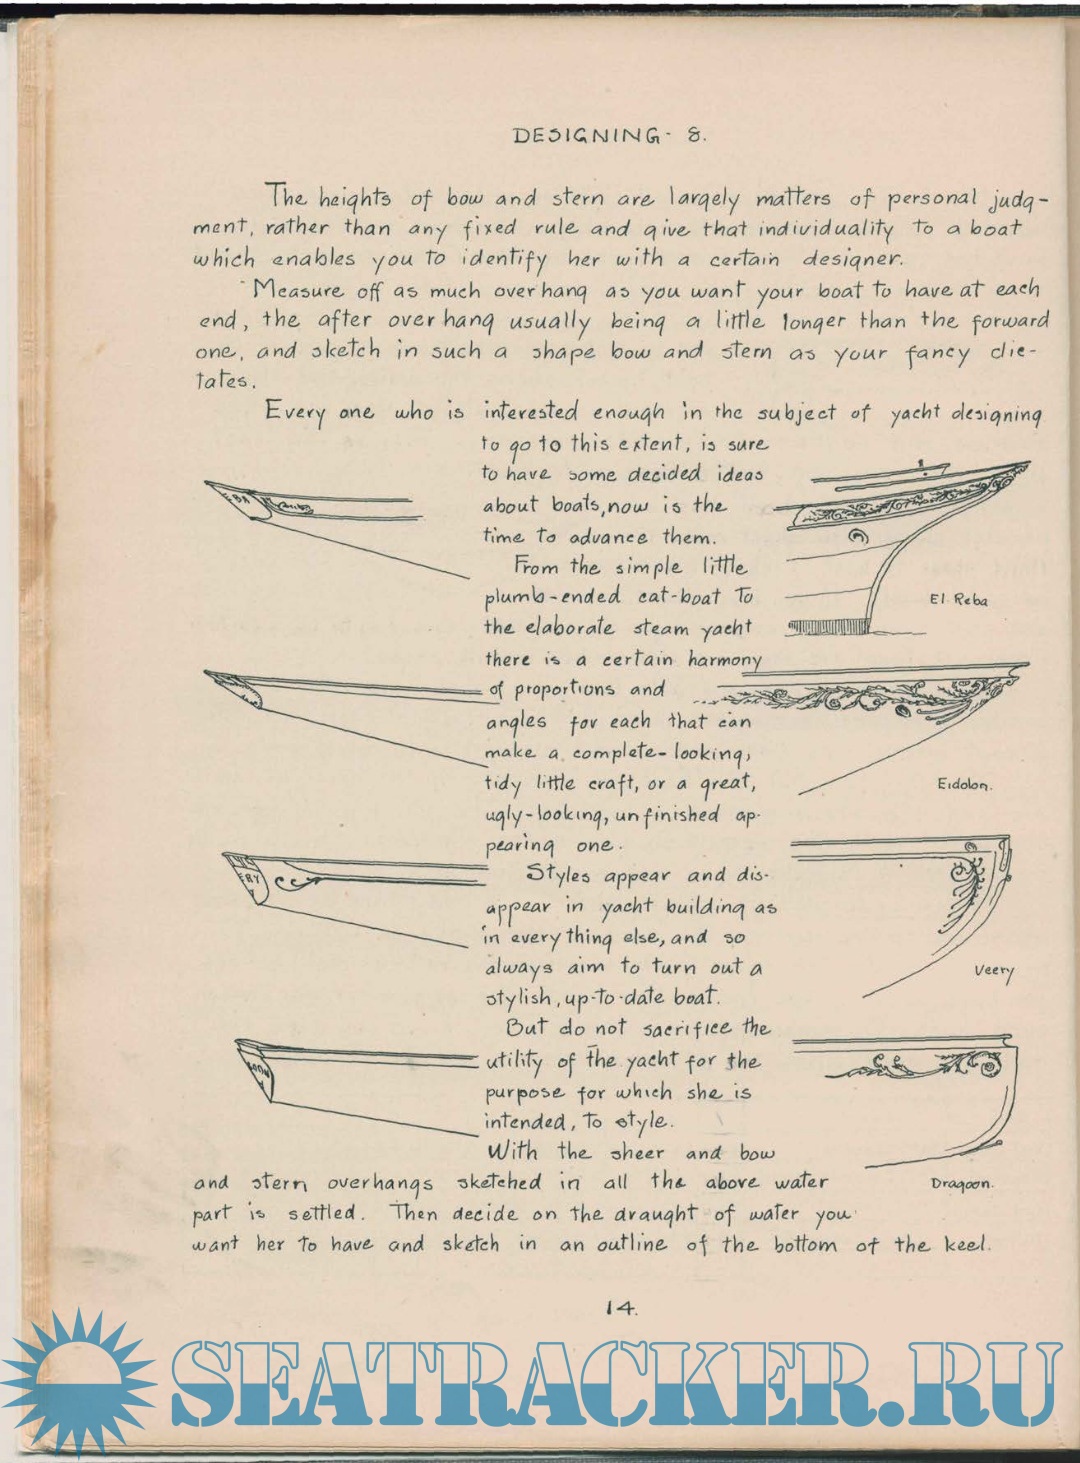 DESIGNING - 8.
The heights of bow and stern are largely matters of personal judg-
ment, rather than any fixed rule and give that individuality to a boat
which enables you to identify her with a certain designer.
Measure off as much overhang as you want your boat to have at each
end, the after overhang usually being a little longer than the forward
one, and sketch in such a shape bow and stern as your fancy dic-
tates.
Every one who is interested enough in the subject of yacht designing
to go to this extent, is sure
to have some decided ideas
about boats, now is the
time to advance them.
From the simple little
plumb-ended cat-boat to
the elaborate steam yacht
there is a certain harmony
of proportions and
angles for each that can
make a complete-looking,
tidy little craft, or a great,
ugly-looking, unfinished ap-
pearing one.
Styles appear and dis-
appear in yacht building as
in everything else, and so
always aim to turn out a
stylish, up-to-date boat.
But do not sacrifice the
utility of the yacht for the
purpose for which she is
intended, to style.
With the sheer and bow
and stern overhangs sketched in all the above water
part is settled. Then decide on the draught of water you
want her to have and sketch in an outline of the bottom of the keel.
EBA
El Reba
Eidolon.
ERY
Veery
Dragoon.
14.
SEATRACKER.RU